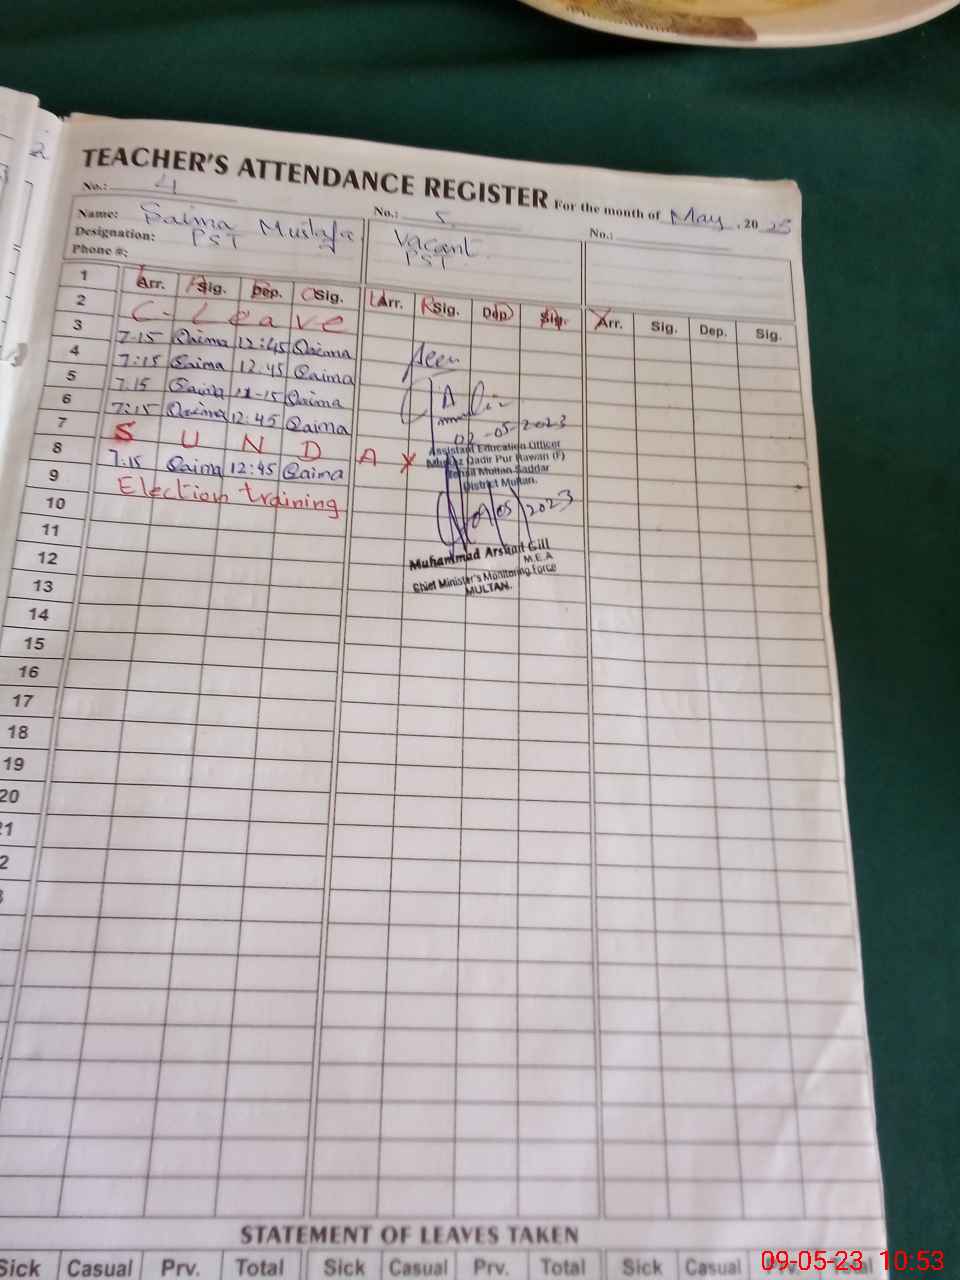 2
TEACHER'S ATTENDANCE REGISTER For the month of May, 2023
No.: 4 No.: 5 No.:
Name: Saima Mustafa Vacant
Designation: PST PST
Phone #:
1 Arr. Sig. Dep. Sig. Arr. Sig. Dep Sig. Arr. Sig. Dep. Sig.
2 C-Leave
3 7-15 Qaima 12:45 Qaima
4 7:15 Saima 12.45 Qaima Seen
5 7.15 Saima 11-15 Qaima
6 7:15 Qaima 12:45 Qaima
02-05-2023
7 S U N D A Y
Assistant Education Officer
Markaz Qadir Pur Rawan (F)
Tehsil Multan Saddar
District Multan.
8 7.15 Qaima 12:45 Qaima
9 Election training
09/05/2023
10
11
Muhammad Arshad Gill
M.E.A
Chief Minister's Monitoring Force
MULTAN.
12
13
14
15
16
17
18
19
20
STATEMENT OF LEAVES TAKEN
Sick Casual Prv. Total Sick Casual Prv. Total Sick Casual Prv. Total
09-05-23 10:53